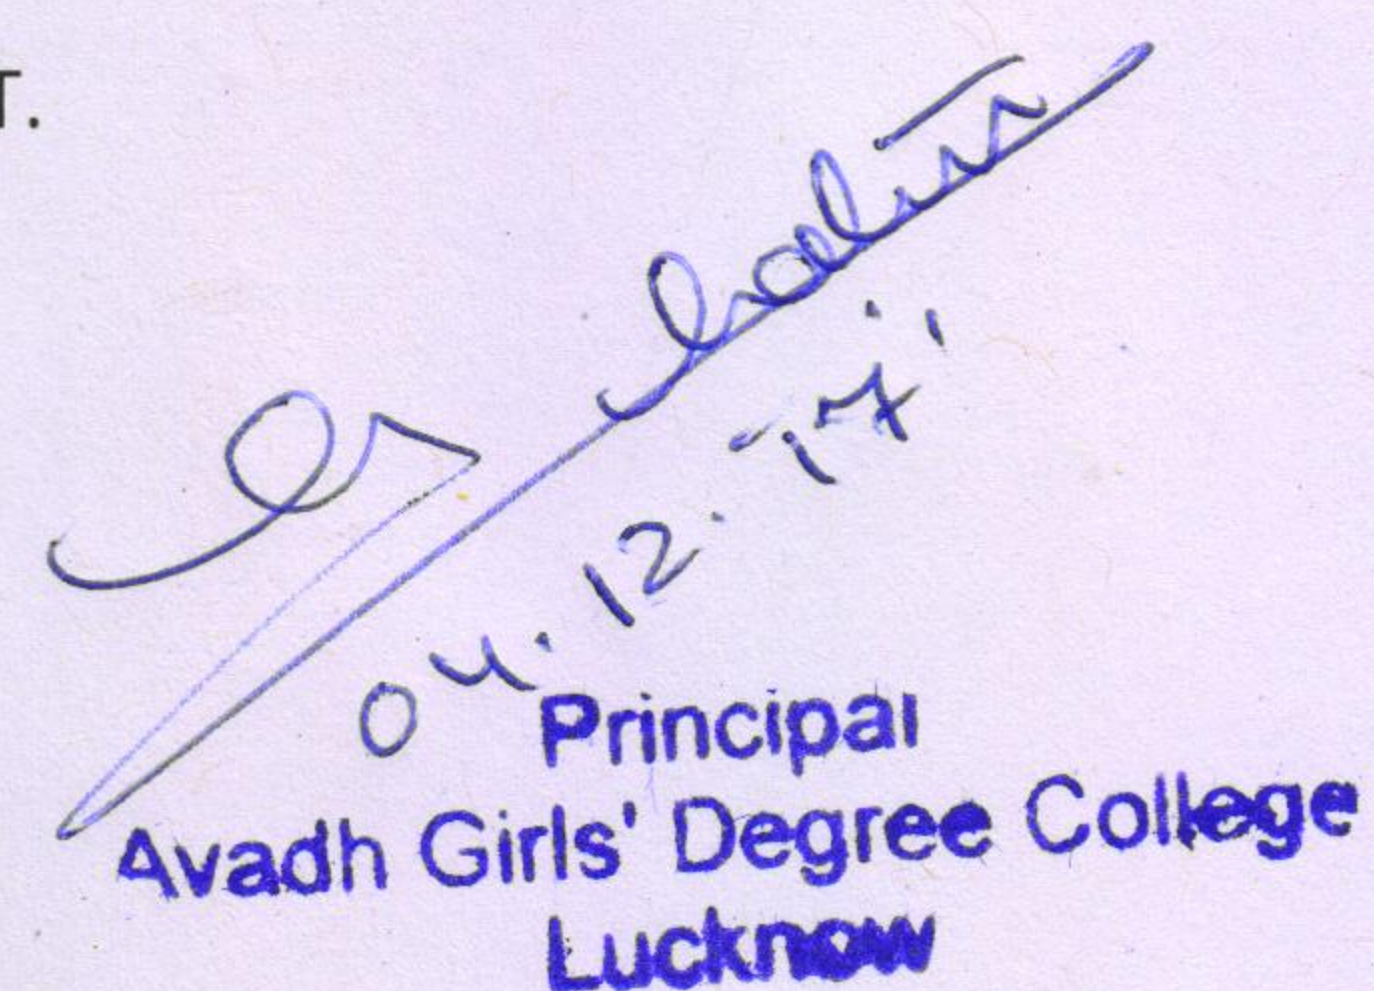 T.
04.12.17
Principal
Avadh Girls' Degree College
Lucknow